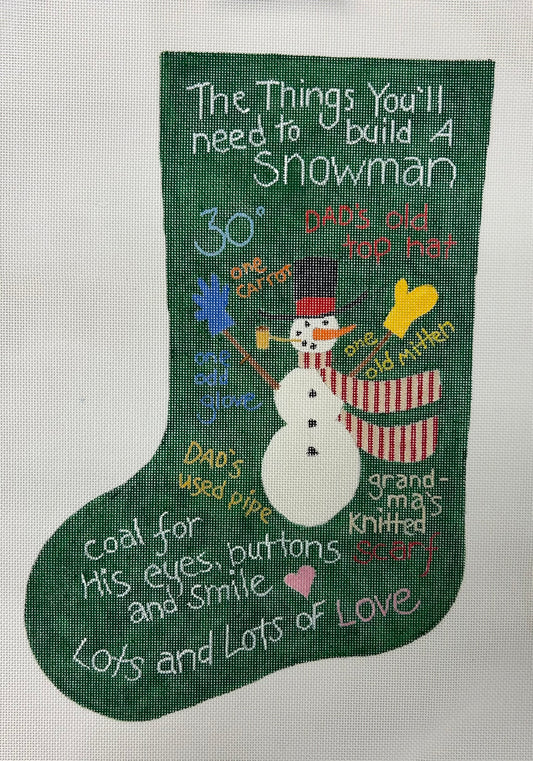 The Things You'll
need to build A
Snowman
30°
DAD's old
top hat
one
carrot
one
old mitten
one
odd
glove
DAD's
used pipe
grand-
ma's
Knitted
scarf
coal for
His eyes, buttons
and smile
Lots and Lots of Love